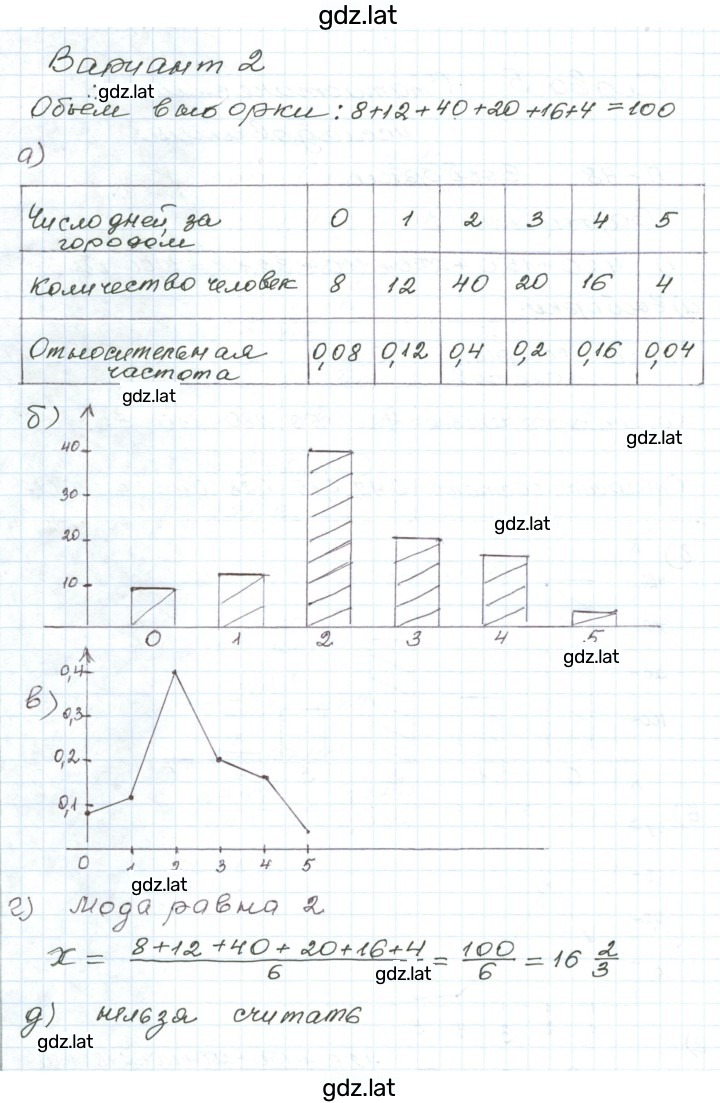 gdz.lat
Вариант 2
gdz.lat
Объем выборки: 8+12+40+20+16+4=100
а)
Число дней за городом 0 1 2 3 4 5
Количество человек 8 12 40 20 16 4
Относительная частота 0,08 0,12 0,4 0,2 0,16 0,04
gdz.lat
б)
gdz.lat
40
30
gdz.lat
20
10
0 1 2 3 4 5
gdz.lat
в)
0,4
0,3
0,2
0,1
0 1 2 3 4 5
gdz.lat
г) мода равна 2
x = 8+12+40+20+16+4/6 = 100/6 = 16 2/3
gdz.lat
д) нельзя считать
gdz.lat
gdz.lat